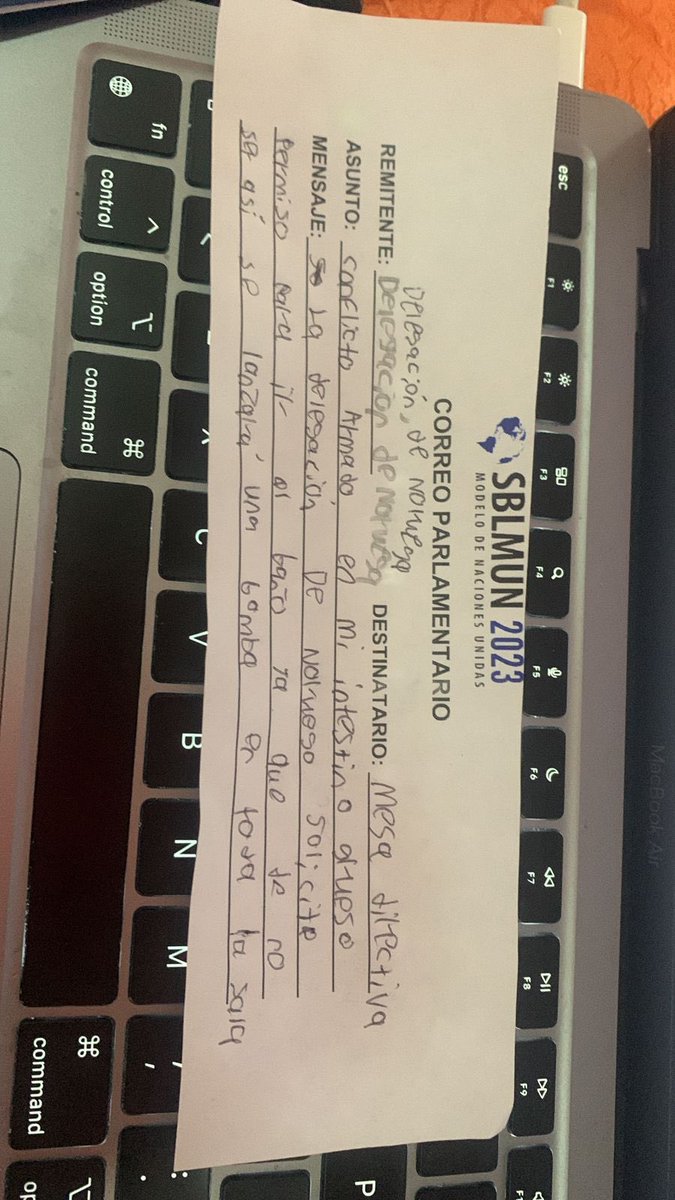 SBLMUN 2023
MODELO DE NACIONES UNIDAS
CORREO PARLAMENTARIO
Delegación, de noruega
REMITENTE: Delegación de Noruega DESTINATARIO: Mesa directiva
ASUNTO: conflicto Armado en mi intestino grueso
MENSAJE: La delegación De Noruego solicita
permiso para ir al baño ya que de no
ser así se lanzará una bomba en toda la sala
esc
F1
F2
F3
F4
F5
F6
F7
F8
F9
MacBook Air
fn
control
option
command
⌘
C
V
B
N
M
,
.
P
⌘
command